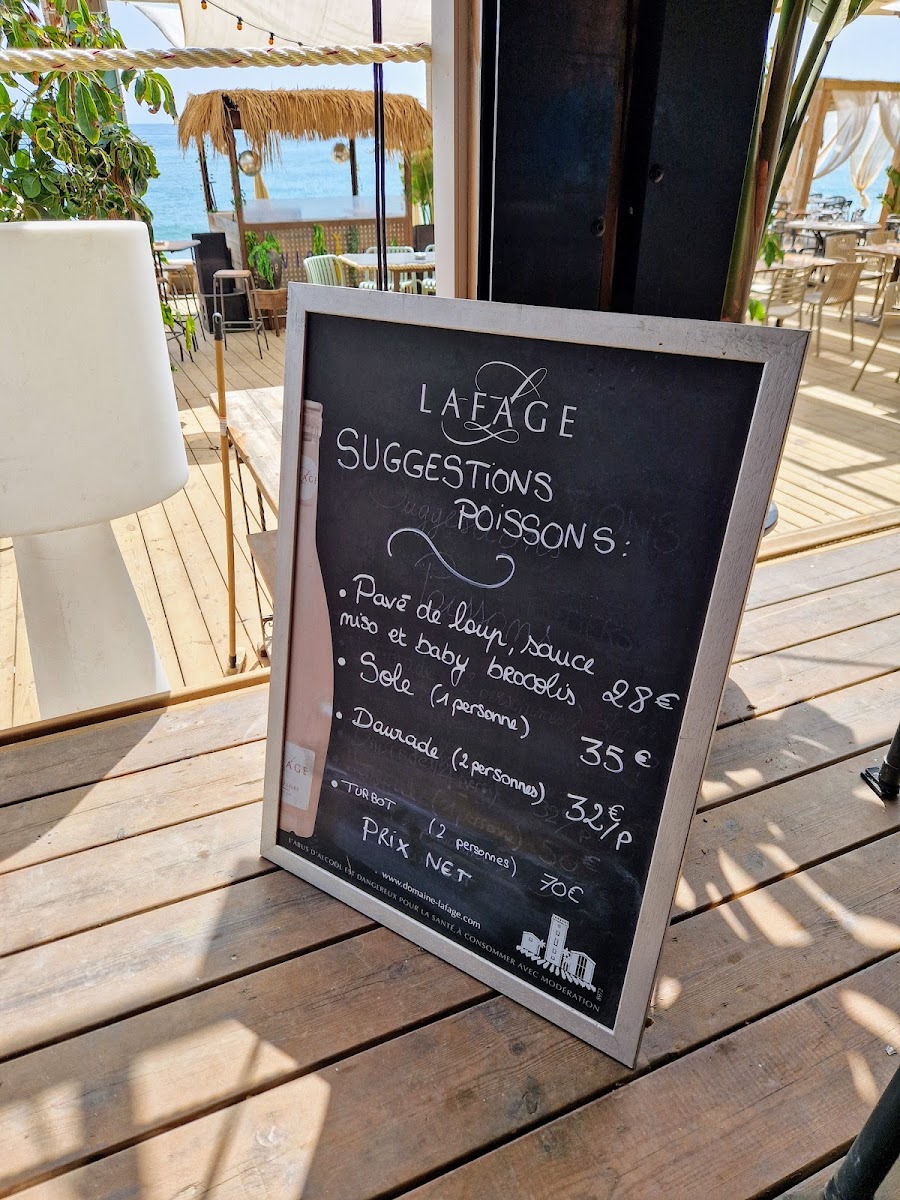 LAFAGE
SUGGESTIONS
POISSONS:
• Pavé de loup, sauce
miso et baby brocolis 28€
• Sole (1 personne) 35€
• Daurade (2 personnes) 32€/p
• TURBOT (2 personnes) 70€
PRIX NET
www.domaine-lafage.com
L'ABUS D'ALCOOL EST DANGEREUX POUR LA SANTÉ, À CONSOMMER AVEC MODÉRATION